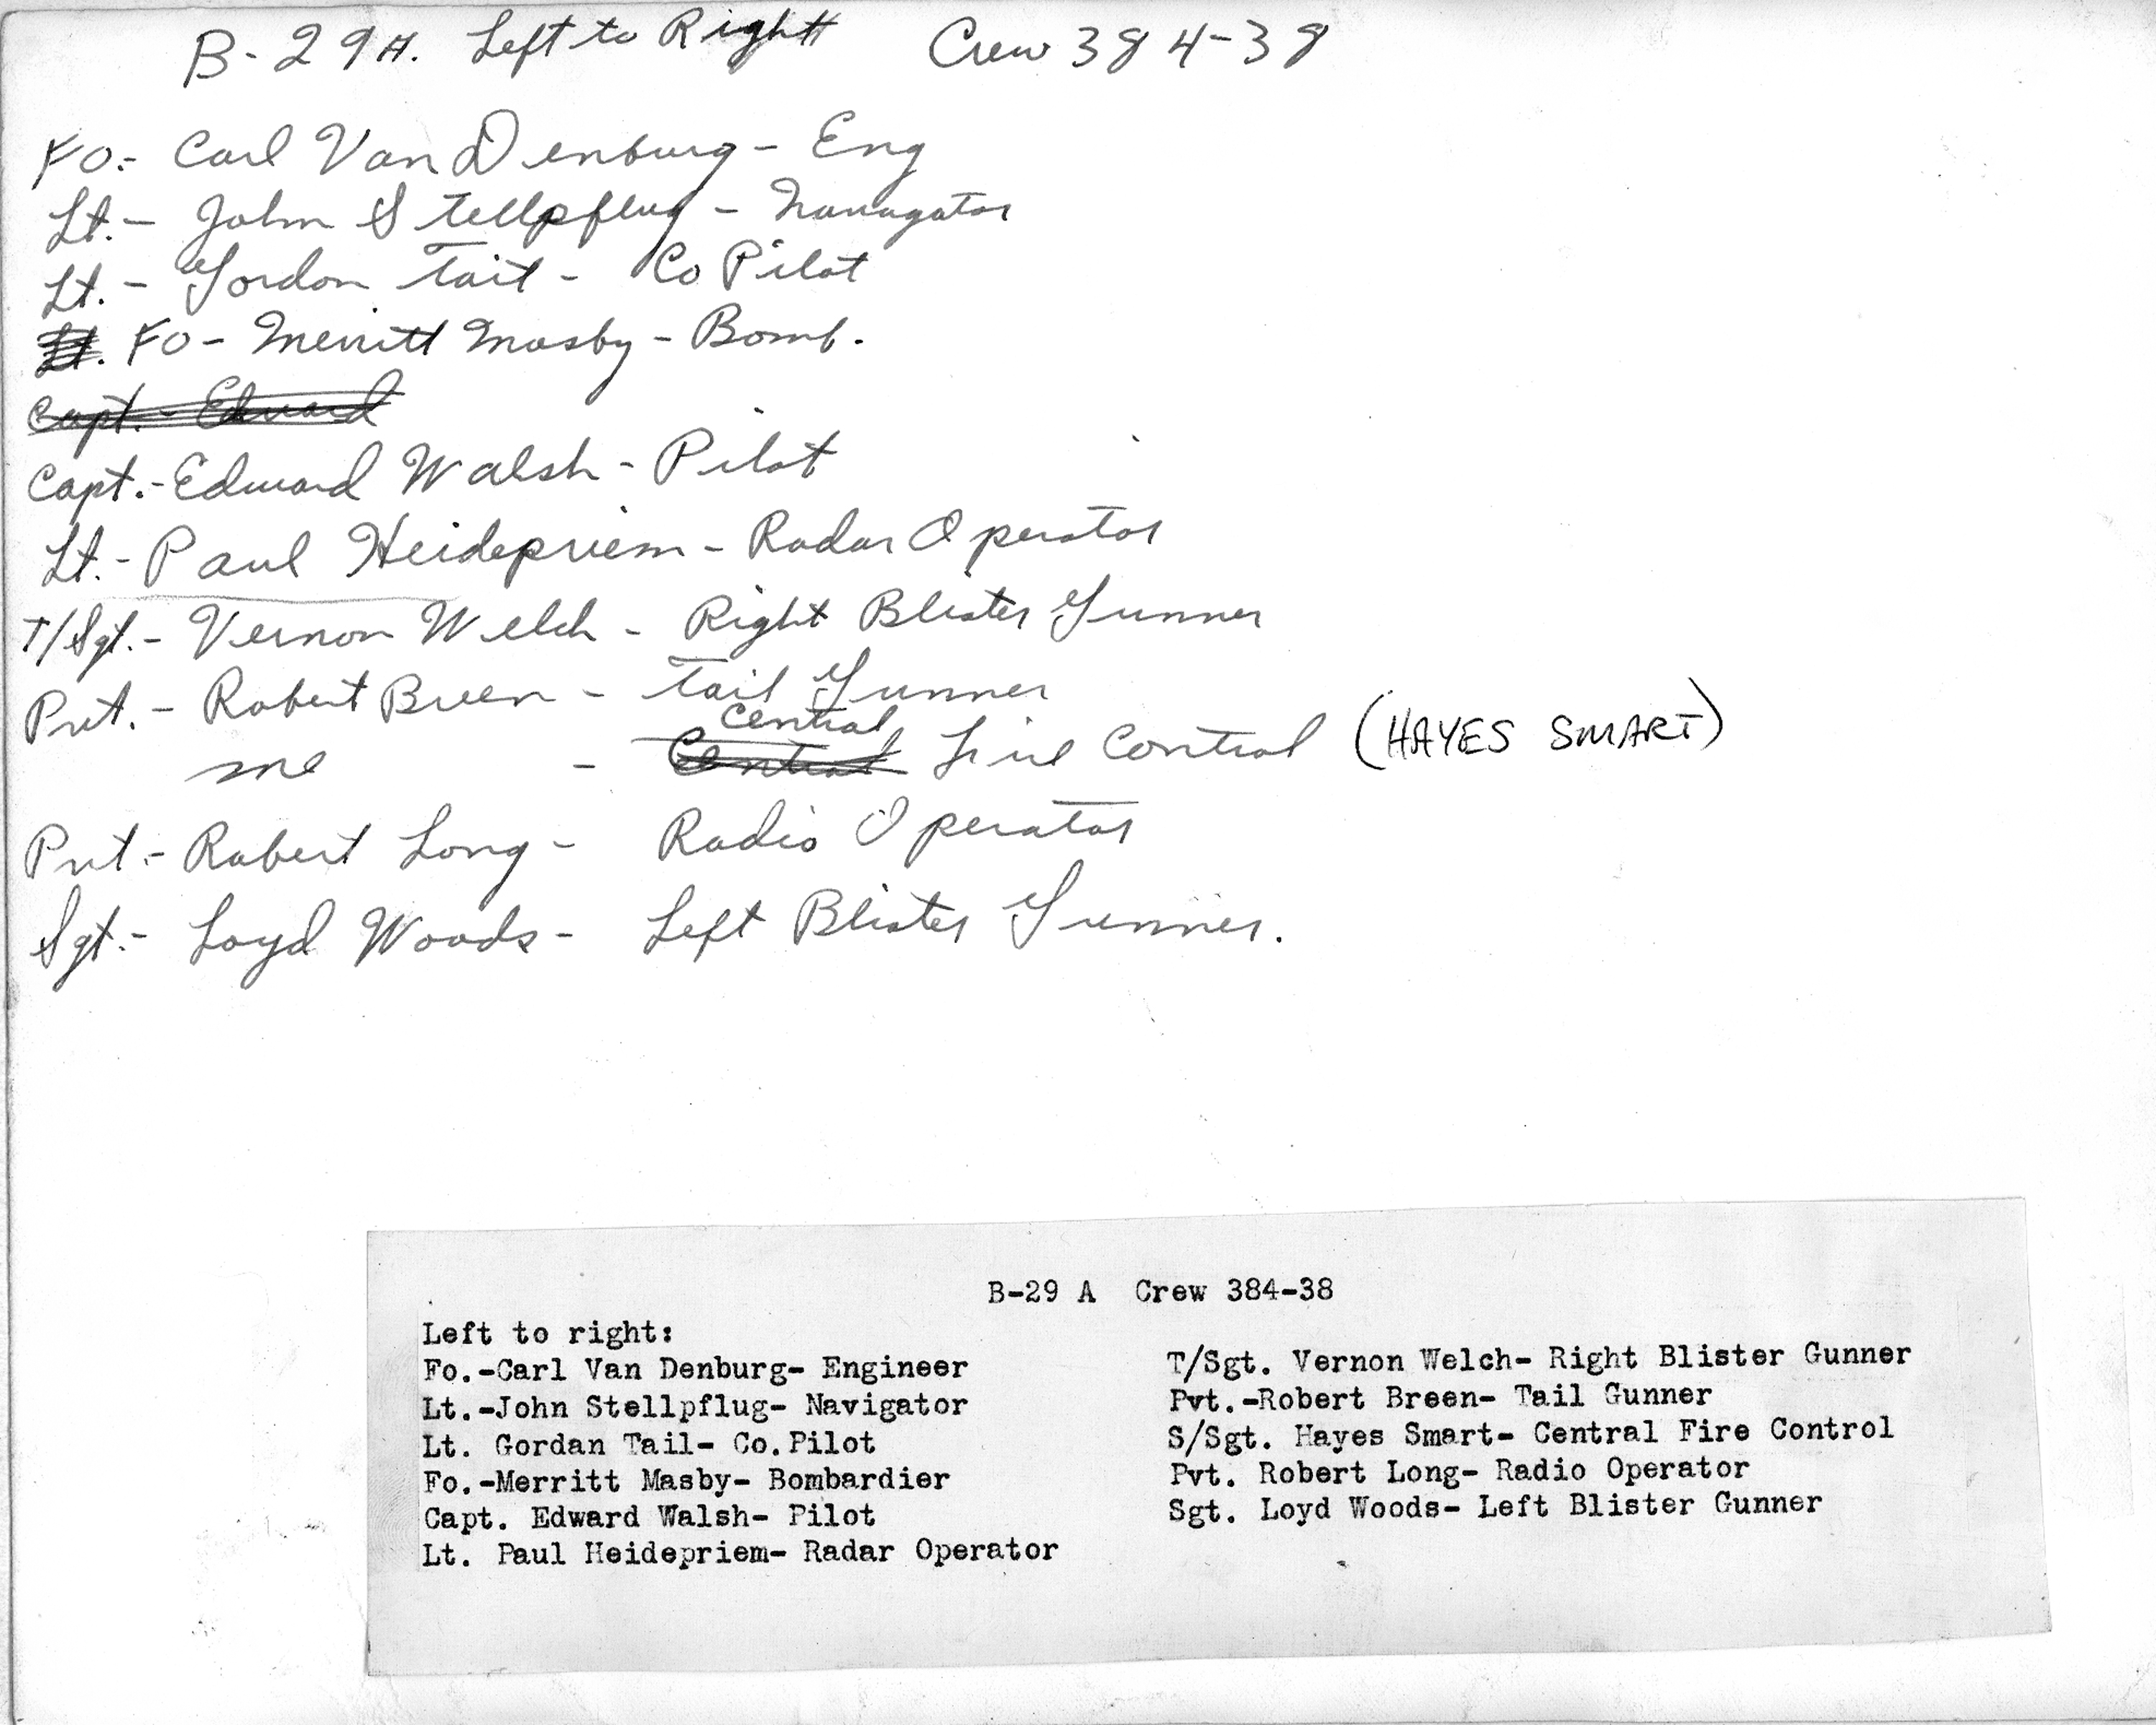 B-29A. Left to Right Crew 384-38
FO.- Carl Van Denburg - Eng
Lt.- John Stellpflug - Navagator
Lt.- Gordon Tait - Co Pilot
Lt. FO- Merritt Masby - Bomb.
Capt.- Edward
Capt.- Edward Walsh - Pilot
Lt.- Paul Heidepriem - Radar Operator
T/Sgt.- Vernon Welch - Right Blister Gunner
Pvt.- Robert Breen - Tail Gunner
Central
me - Central Fire Control (HAYES SMART)
Pvt.- Robert Long - Radio Operator
Sgt.- Loyd Woods - Left Blister Gunner.
B-29 A Crew 384-38
Left to right:
Fo.-Carl Van Denburg- Engineer
Lt.-John Stellpflug- Navigator
Lt. Gordan Tail- Co.Pilot
Fo.-Merritt Masby- Bombardier
Capt. Edward Walsh- Pilot
Lt. Paul Heidepriem- Radar Operator
T/Sgt. Vernon Welch- Right Blister Gunner
Pvt.-Robert Breen- Tail Gunner
S/Sgt. Hayes Smart- Central Fire Control
Pvt. Robert Long- Radio Operator
Sgt. Loyd Woods- Left Blister Gunner